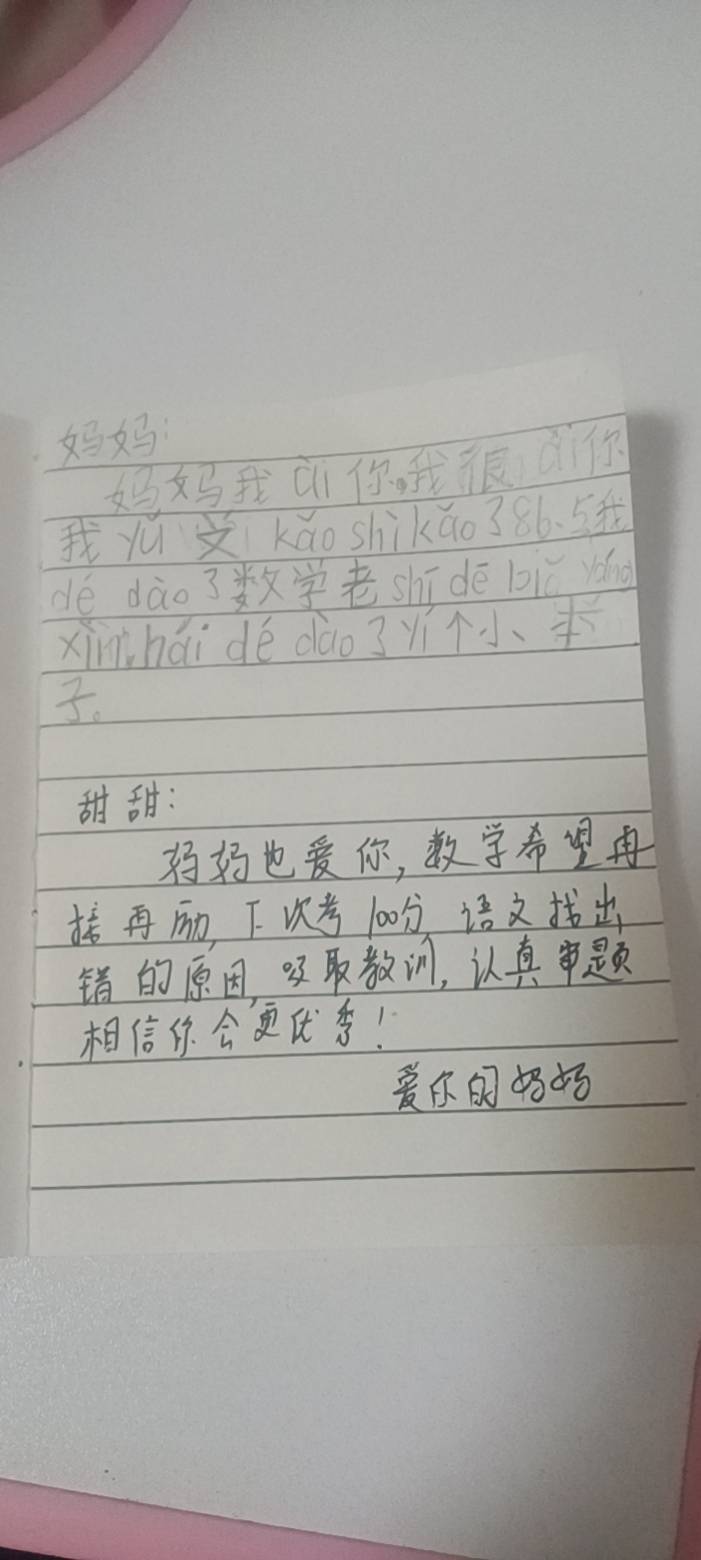 妈妈:
妈妈我ài你。我很ài你
我yǔ文kǎo shì kǎo了86.5我
dé dào了数学老shī dē biǎ yáng
xìn, hái dé dào了yí个小本
子。
甜甜:
妈妈也爱你,数学希望再
接再励,下次考100分,语文找出
错的原因,吸取教训,认真审题
相信你会更优秀!
爱你的妈妈